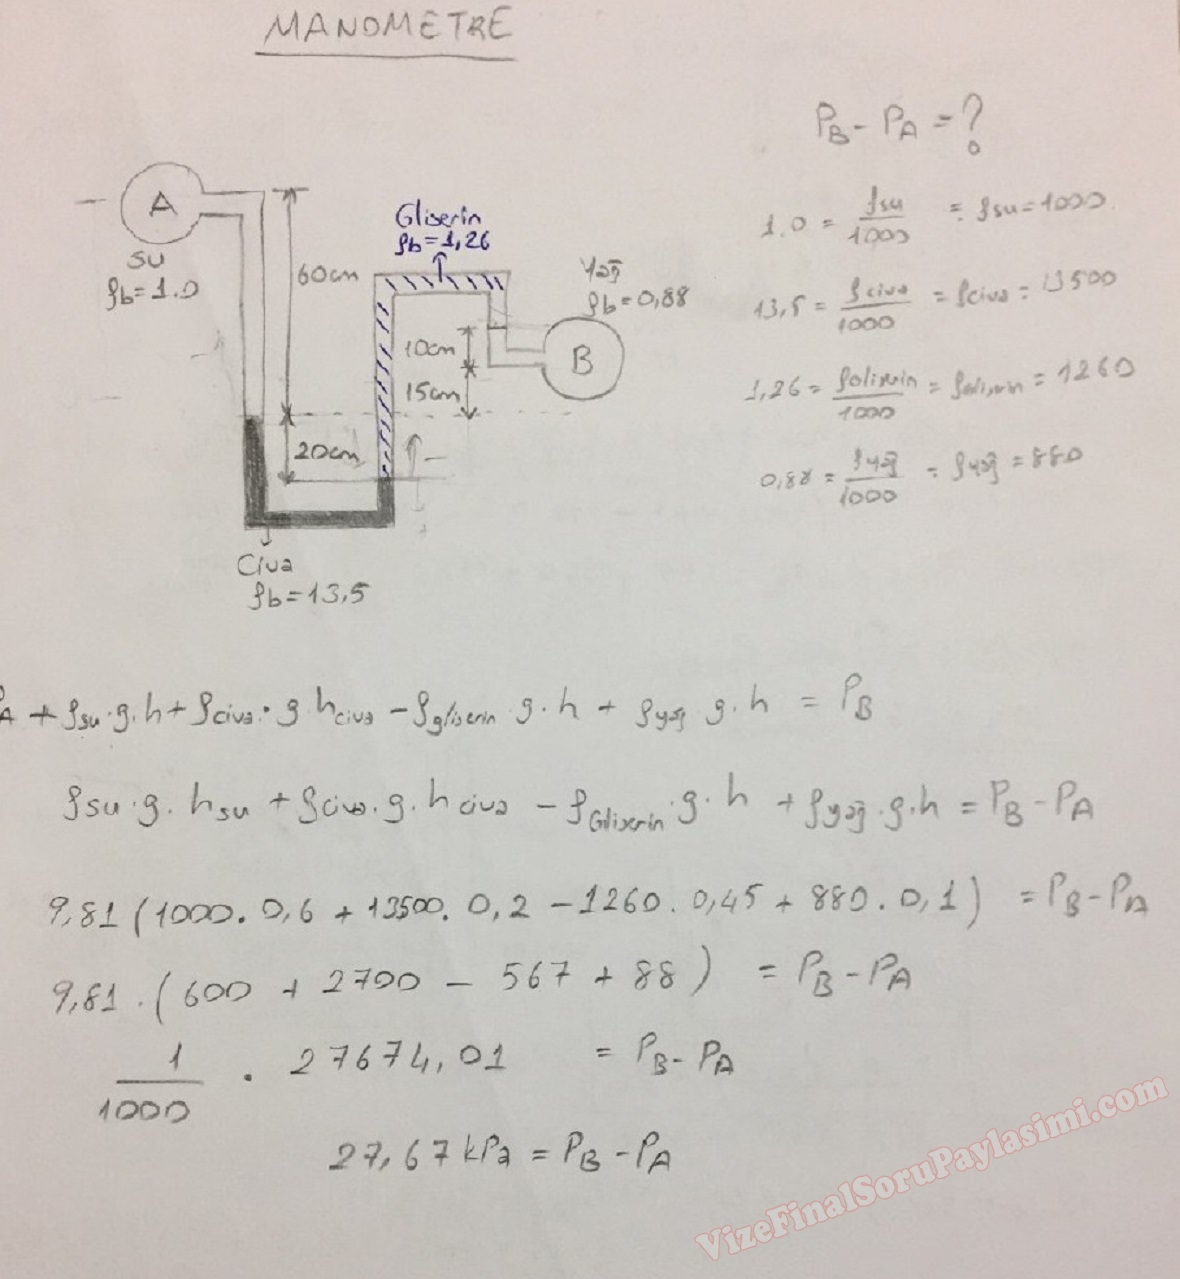 MANOMETRE
PB - PA = ?
A
SU
ρb=1.0
60cm
Gliserin
ρb=1,26
Yağ
ρb=0,88
B
10cm
15cm
20cm
Civa
ρb=13,5
1.0 = ρsu/1000 = ρsu=1000
13,5 = ρciva/1000 = ρciva = 13500
1,26 = ρgliserin/1000 = ρgliserin = 1260
0,88 = ρyağ/1000 = ρyağ = 880
PA + ρsu.g.h + ρciva.g hciva - ρgliserin g.h + ρyağ g.h = PB
ρsu.g.hsu + ρciva.g.hciva - ρGliserin.g.h + ρyağ.g.h = PB - PA
9,81 (1000.0,6 + 13500.0,2 - 1260.0,45 + 880.0,1) = PB - PA
9,81.(600 + 2700 - 567 + 88) = PB - PA
1/1000 . 27674,01 = PB - PA
27,67 kPa = PB - PA
VizeFinalSoruPaylasimi.com